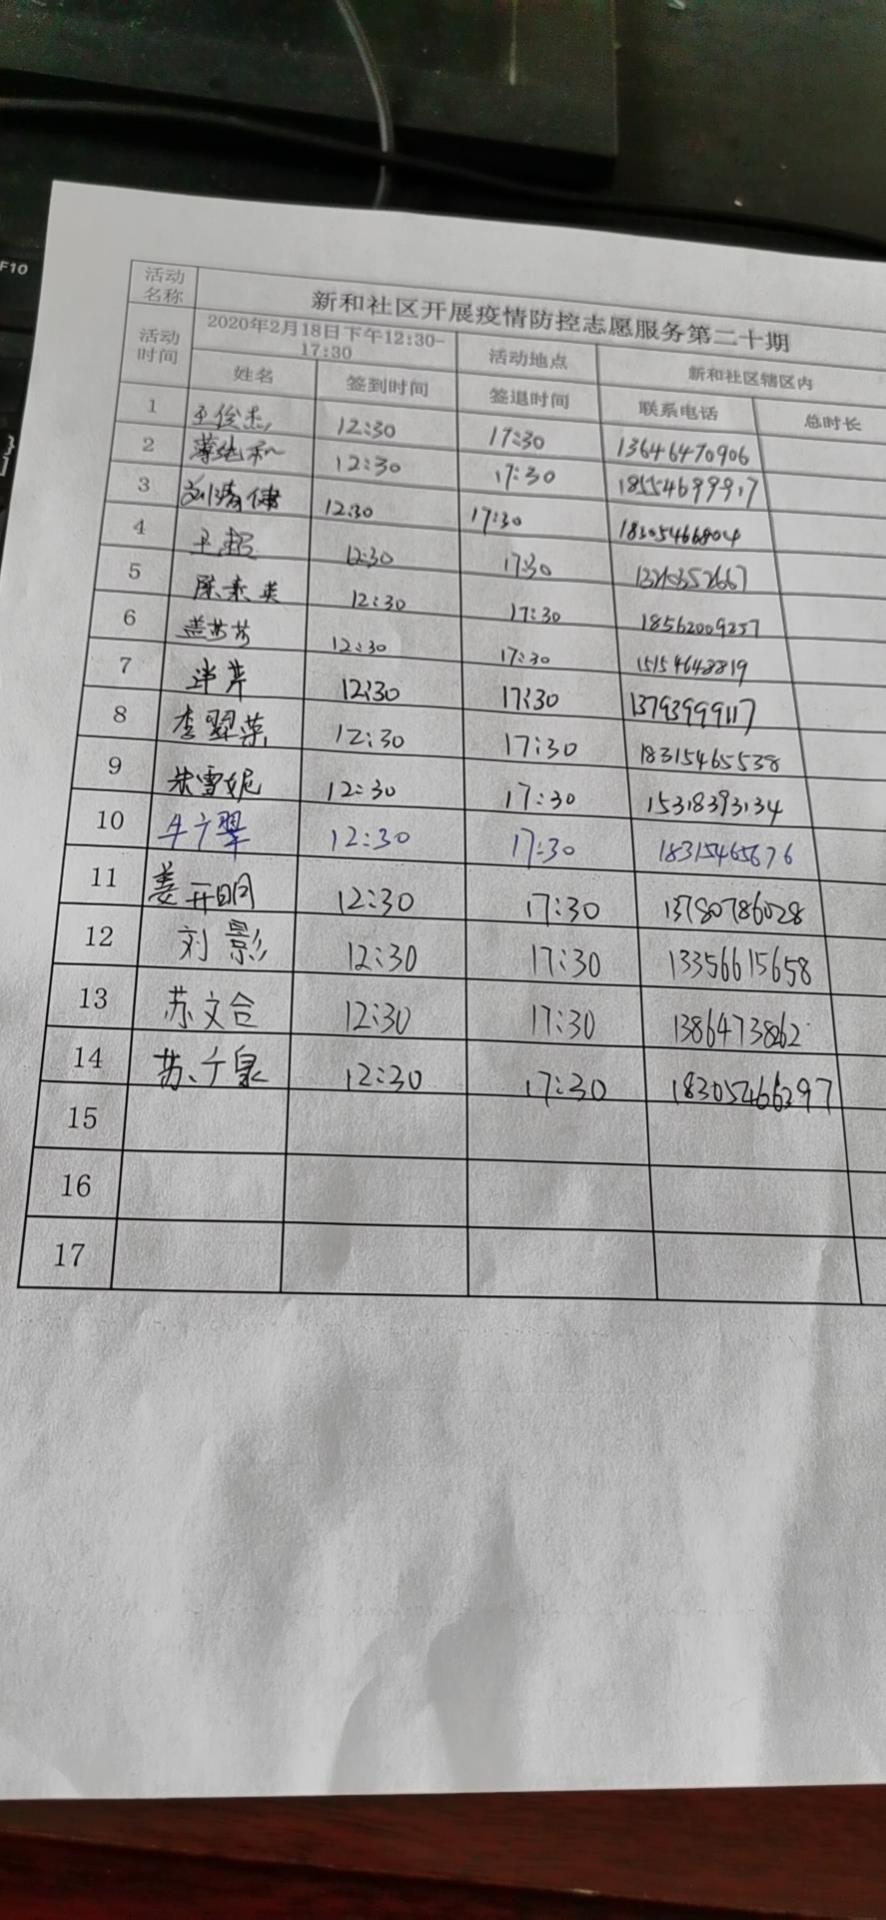 F10
活动名称 新和社区开展疫情防控志愿服务第二十期
活动时间 2020年2月18日下午12:30-17:30 活动地点 新和社区辖区内
姓名 签到时间 签退时间 联系电话 总时长
1 王俊杰 12:30 17:30 13646470906
2 12:30 17:30 18554699917
3 刘清健 12:30 17:30 18305466804
4 王超 12:30 17:30
5 陈素英 12:30 17:30 18562009257
6 盖芳芳 12:30 17:30 15154648819
7 12:30 17:30 13793999117
8 李翠荣 12:30 17:30 18315465538
9 朱雪妮 12:30 17:30 15318393134
10 牛广翠 12:30 17:30 18315465676
11 姜开明 12:30 17:30 13780786028
12 刘影 12:30 17:30 13356615658
13 苏文合 12:30 17:30 13864738262
14 苏千泉 12:30 17:30 18305466297
15
16
17